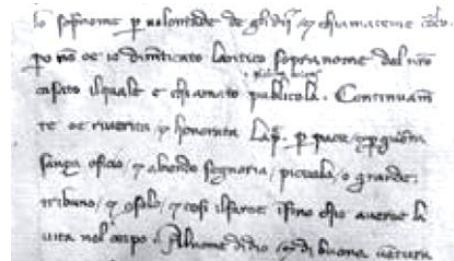 lo sopranome p volontade de ghi dij et chiamaceme
po nō oe io dimēticato lantico sopranome del nrō
casato ilquale e chiamato publicola. Continuam
te oe riverita et honorata p pace et p guerra
sanza oficio et abendo segnoria piccola o grande
tribuno et cosi ilfaroe ifino chio averoe la
vita nel corpo Alnome didio et di buona ventura